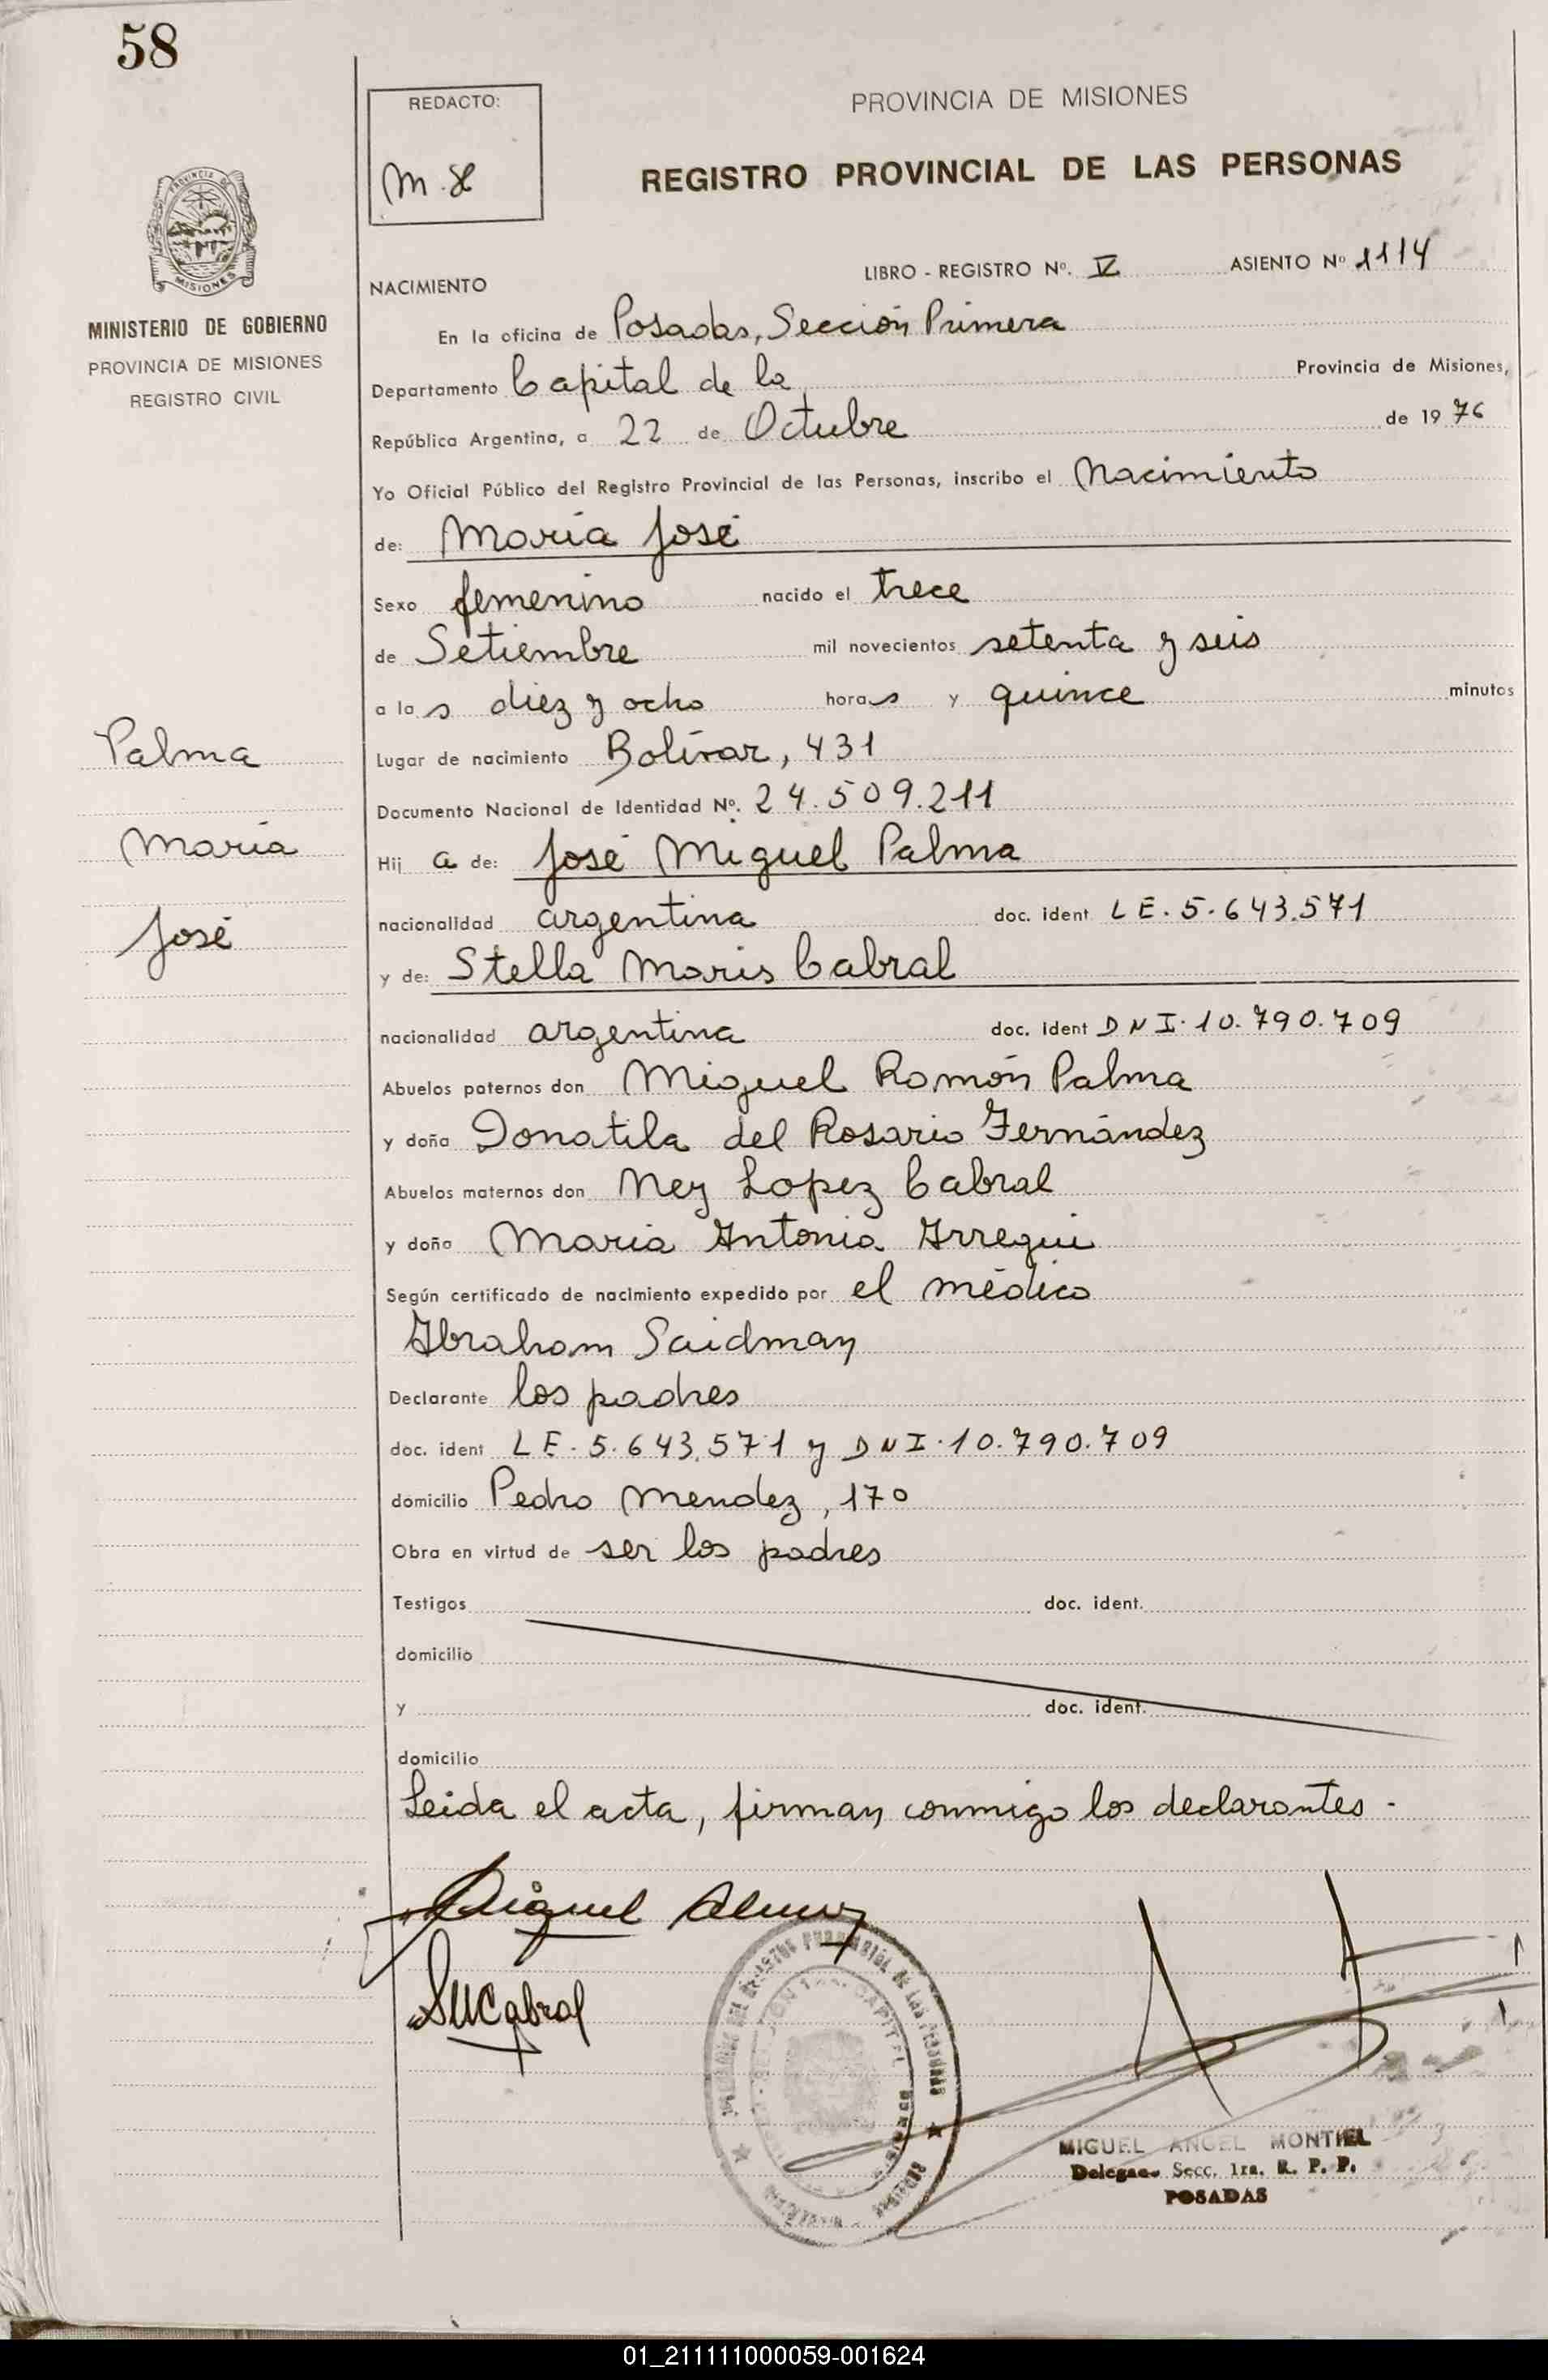 58
REDACTO:
PROVINCIA DE MISIONES
REGISTRO PROVINCIAL DE LAS PERSONAS
PROVINCIA DE
MISIONES
MINISTERIO DE GOBIERNO
PROVINCIA DE MISIONES
REGISTRO CIVIL
LIBRO - REGISTRO Nº. V ASIENTO Nº 1114
NACIMIENTO
En la oficina de Posadas, Sección Primera
Departamento Capital de la Provincia de Misiones,
República Argentina, a 22 de Octubre de 1976
Yo Oficial Público del Registro Provincial de las Personas, inscribo el Nacimiento
de: María José
Sexo femenino nacido el trece
de Setiembre mil novecientos setenta y seis
a las diez y ocho horas y quince minutos
Palma
María
José
Lugar de nacimiento Bolívar, 431
Documento Nacional de Identidad Nº. 24.509.211
Hij a de: José Miguel Palma
nacionalidad argentina doc. ident LE. 5.643.571
y de: Stella Maris Cabral
nacionalidad argentina doc. ident DNI. 10.790.709
Abuelos paternos don Miguel Ramón Palma
y doña Donatila del Rosario Fernández
Abuelos maternos don Ney Lopez Cabral
y doña María Antonia Arregui
Según certificado de nacimiento expedido por el médico
Abraham Saidman
Declarante los padres
doc. ident LE. 5.643.571 y DNI. 10.790.709
domicilio Pedro Mendez, 170
Obra en virtud de ser los padres
Testigos doc. ident.
domicilio
y doc. ident.
domicilio
Leida el acta, firman conmigo los declarantes.
SMCabral
MIGUEL ANGEL MONTIEL
Delegado Secc. 1ra. R. P. P.
POSADAS
01_211111000059-001624